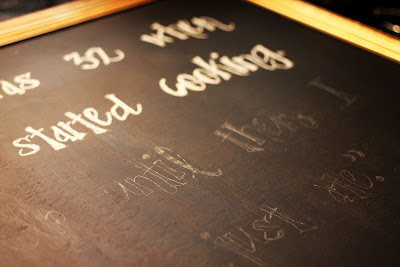 as 32 when
started cooking.
until then, I
just ate."